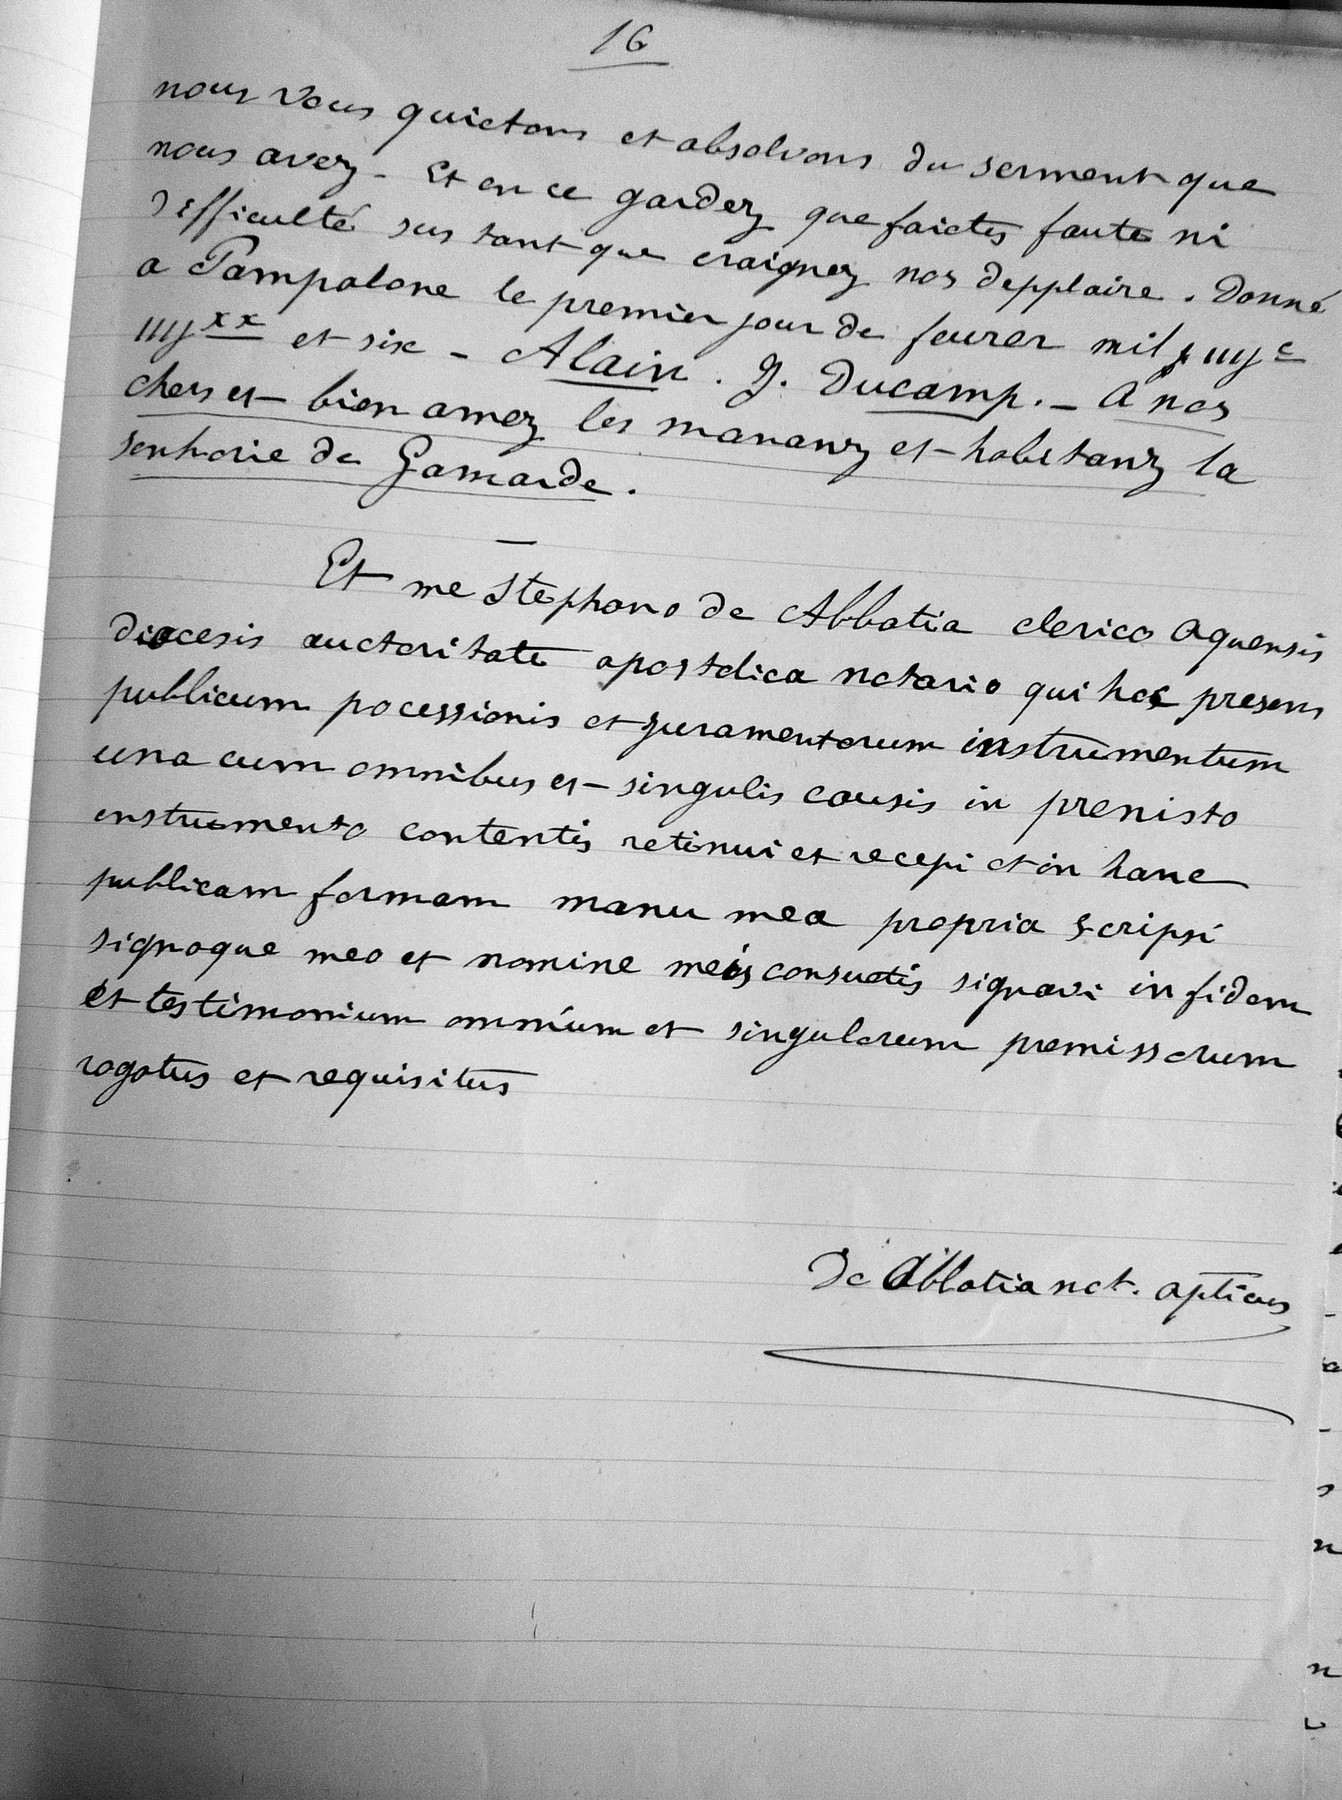 16
nous vous quictons et absolvons du serment que
nous avez - Et en ce gardez que faictes faute ni
difficulté sus tant que craignez nos depplaire. Donné
a Pampalone le premier jour de feurer mil iiijᶜ
iiijˣˣ et six - Alain. J. Ducamp. - A nos
chers et bien amez les mananz et habitanz la
senhorie de Gamarde.
Et me Stephano de Abbatia clerico Aquensis
diocesis auctoritate apostolica notario qui hoc presens
publicum pocessionis et juramentorum instrumentum
una cum omnibus et singulis causis in premisto
instrumento contentis retinui et recepi et in hanc
publicam formam manu mea propria scripsi
signoque meo et nomine meis consuetis signavi in fidem
et testimonium omnium et singulorum premissorum
rogatus et requisitus
De Abbatia not. apticus